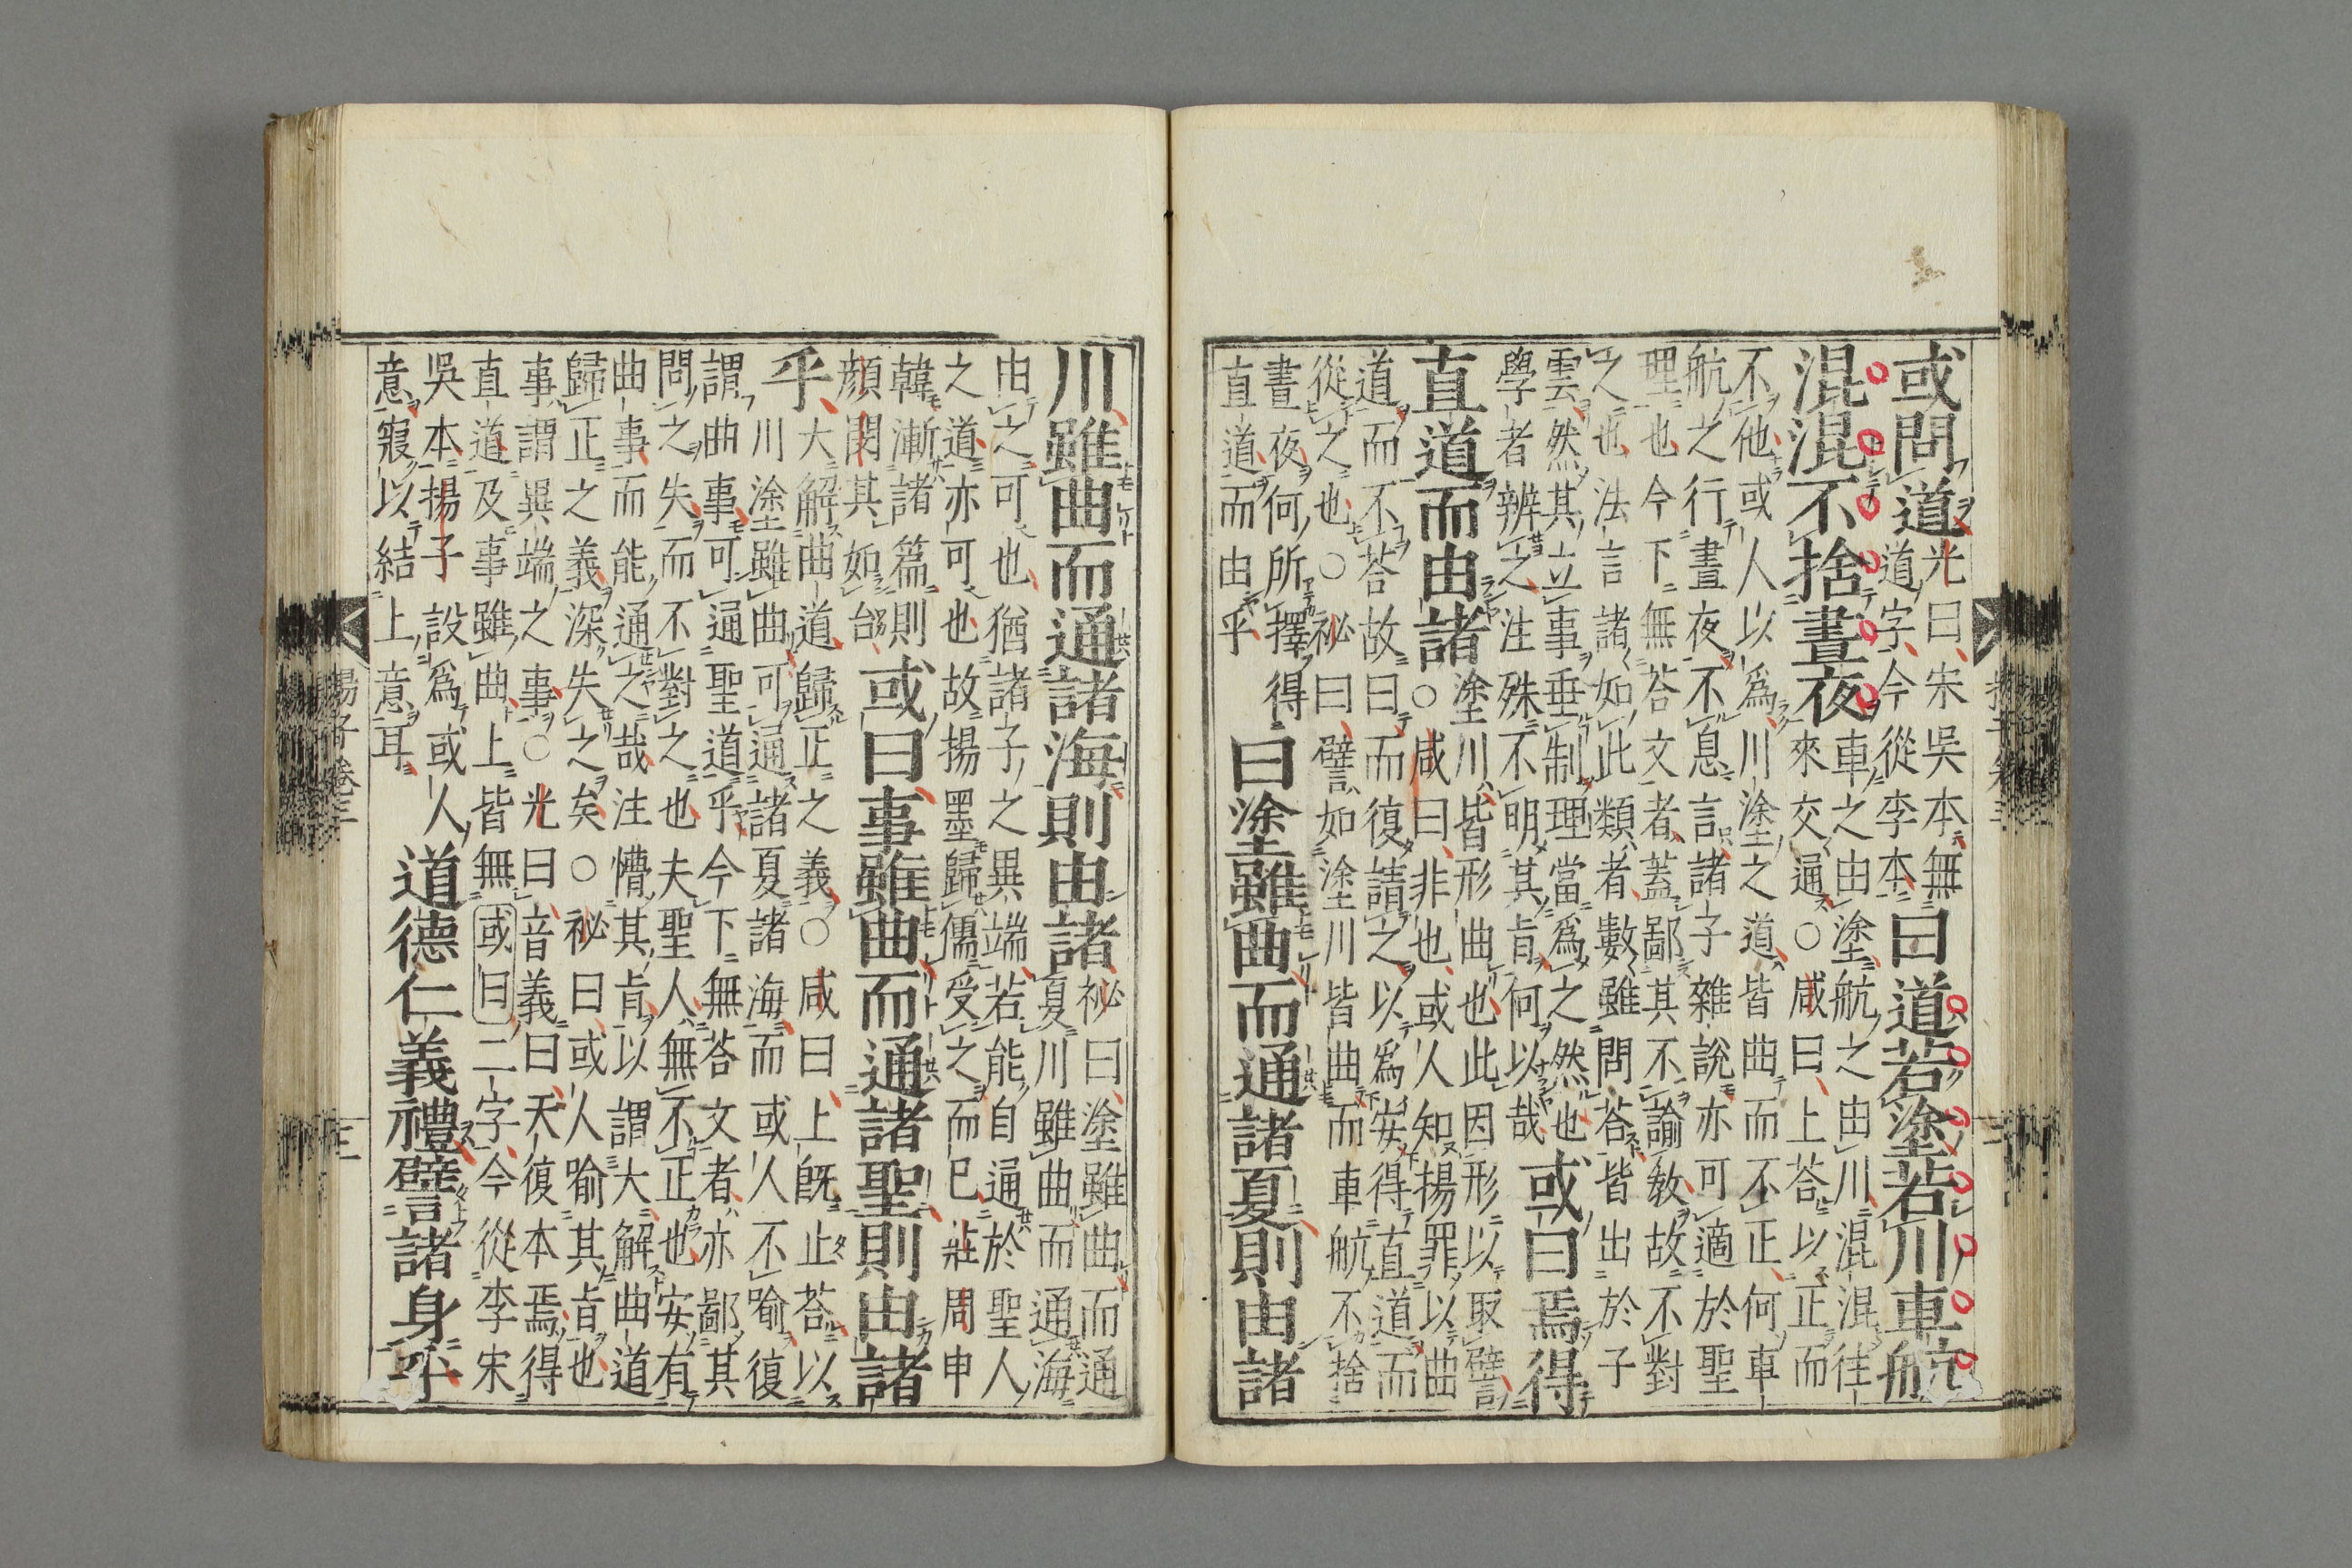 或問道
光曰宋吳本無
道字今從李本
曰道若塗若川車航
混混不捨晝夜
車之由塗航之由川混混往
來交通○咸曰上荅以正而
不他或人以爲川塗之道皆曲而不正何車
航之行晝夜不息言諸子雜說亦可適於聖
理也今下無荅文者蓋鄙其不諭敎故不對
之也法言諸如此類者數雖問荅皆出於子
雲然其立事垂制理當爲之然也
學者辨之注殊不明其㫖何以哉
或曰焉得
直道而由諸
塗川皆形曲也此因形以取譬
○咸曰非也或人知揚罪以曲
道而不荅故曰而復請之以爲安得直道而
從之也○祕曰譬如塗川皆曲而車航不捨
晝夜何所擇得
直道而由乎
曰塗雖曲而通諸夏則由諸
川雖曲而通諸海則由諸
祕曰塗雖曲而通
夏川雖曲而通海
由之可也猶諸子之異端若能自通於聖人
之道亦可也故揚墨歸儒受之而已莊周申
韓漸諸篇則
顔閔其如台
或曰事雖曲而通諸聖則由諸
乎
大解曲道歸正之義○咸曰上旣止荅以
川塗雖曲可通諸夏諸海而或人不喻復
謂曲事可通聖道乎今下無荅文者亦鄙其
問之失而不對之也夫聖人無不正也安有
曲事而能通之哉注懵其㫖以謂大解曲道
歸正之義深失之矣○祕曰或人喻其㫖也
事謂異端之事○光曰音義曰天復本焉得
直道及事雖曲上皆無或曰二字今從李宋
吳本揚子設爲或人
意寢以結上意耳
道德仁義禮譬諸身乎
揚子卷三
三